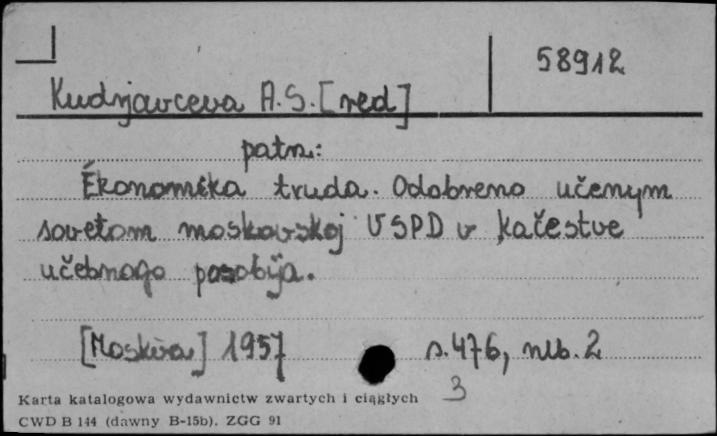 58912
Kudrjavceva A.S. [red]
patrz:
Ėkonomika truda. Odobreno učenym
sovetom moskovskoj VSPD v kačestve
učebnogo posobija.
[Moskva] 1957 s. 476, nlb. 2
3
Karta katalogowa wydawnictw zwartych i ciągłych
CWD B 144 (dawny B-15b). ZGG 91